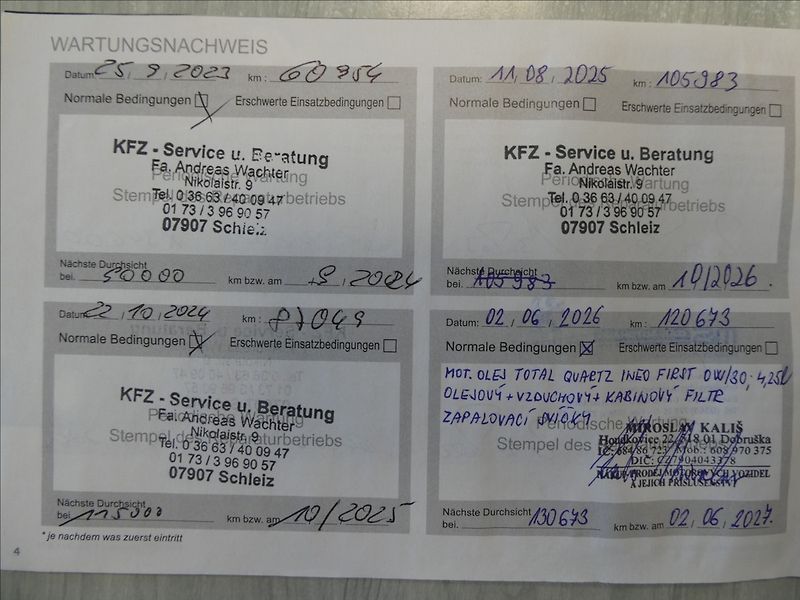 WARTUNGSNACHWEIS
Datum: 25, 9, 2023 km: 60954
Normale Bedingungen Erschwerte Einsatzbedingungen
KFZ - Service u. Beratung
Fa. Andreas Wachter
Nikolaistr. 9
Tel. 0 36 63 / 40 09 47
01 73 / 3 96 90 57
07907 Schleiz
Periodische Wartung
Stempel des Reparaturbetriebs
Nächste Durchsicht
bei. 90000 km bzw. am 9, 2024
Datum: 22, 10, 2024 km: 87049
Normale Bedingungen Erschwerte Einsatzbedingungen
KFZ - Service u. Beratung
Fa. Andreas Wachter
Nikolaistr. 9
Tel. 0 36 63 / 40 09 47
01 73 / 3 96 90 57
07907 Schleiz
Periodische Wartung
Stempel des Reparaturbetriebs
Nächste Durchsicht
bei. 115000 km bzw. am 10/2025
* je nachdem was zuerst eintritt
4
Datum: 11, 08, 2025 km: 105983
Normale Bedingungen Erschwerte Einsatzbedingungen
KFZ - Service u. Beratung
Fa. Andreas Wachter
Nikolaistr. 9
Tel. 0 36 63 / 40 09 47
01 73 / 3 96 90 57
07907 Schleiz
Periodische Wartung
Stempel des Reparaturbetriebs
Nächste Durchsicht
bei. 105983 km bzw. am 10/2026.
Datum: 02, 06, 2026 km: 120673
Normale Bedingungen Erschwerte Einsatzbedingungen
MOT. OLEJ TOTAL QUARTZ INEO FIRST 0W/30; 4,25l
OLEJOVÝ + VZDUCHOVÝ + KABINOVÝ FILTR
ZAPALOVACÍ SVÍČKY
Periodische Wartung
Stempel des
MIROSLAV KALIŠ
Houdkovice 22, 518 01 Dobruška
IČ: 684 86 723 Mob.: 608 970 375
DIČ: CZ7904043378
PRODEJ MOTOROVÝCH VOZIDEL
A JEJICH PŘÍSLUŠENSTVÍ
Nächste Durchsicht
bei. 130673 km bzw. am 02, 06, 2027.